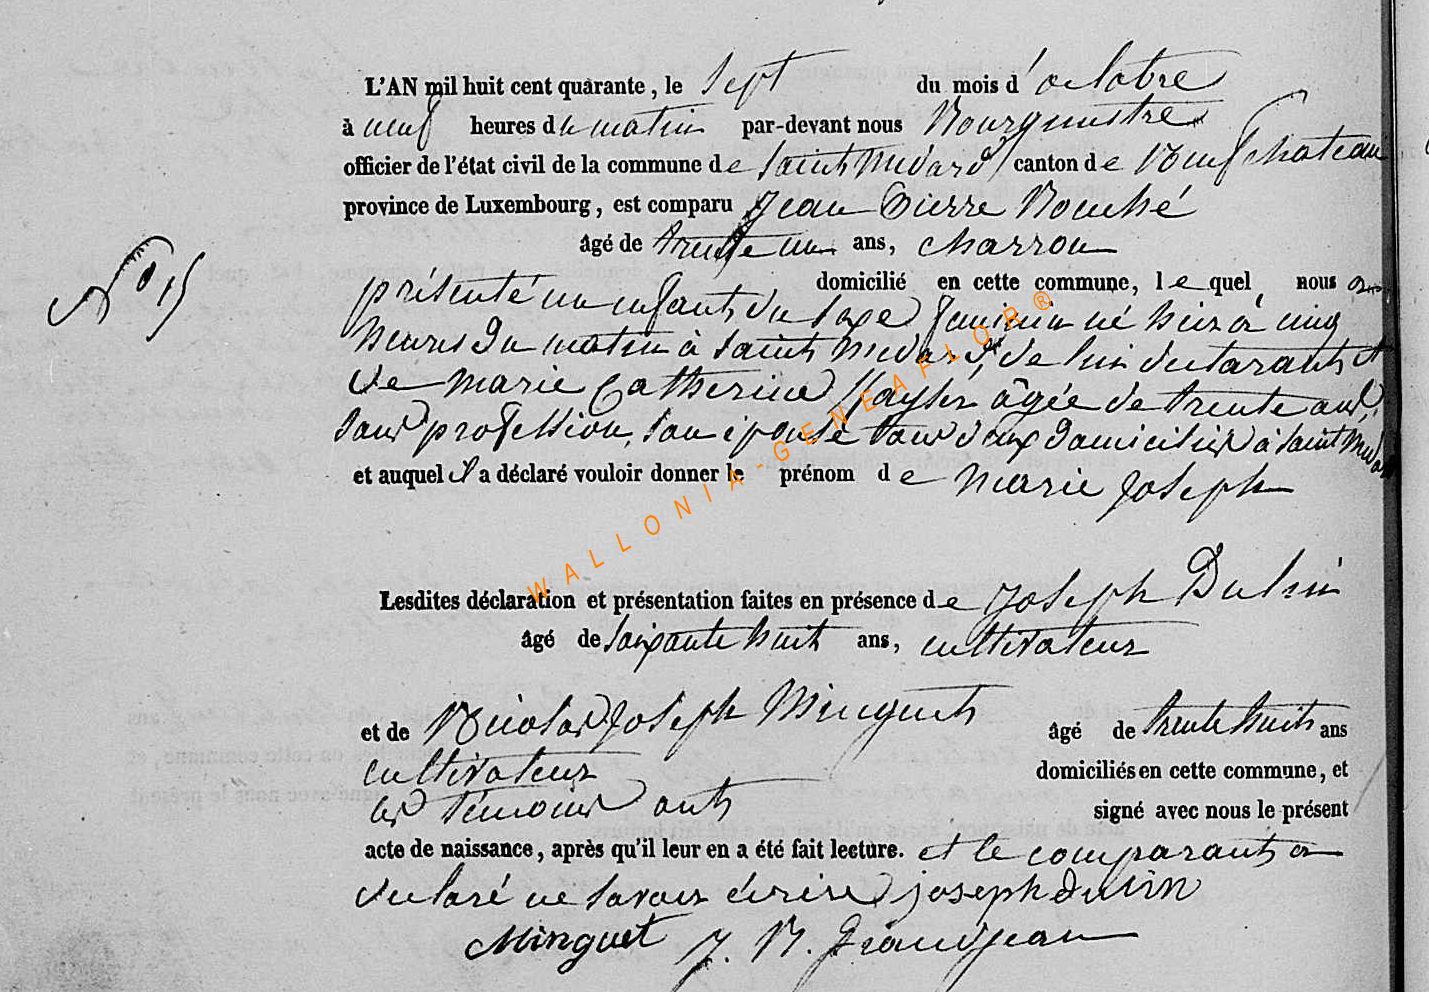 L'AN mil huit cent quarante, le sept du mois d'octobre
à neuf heures du matin par-devant nous Bourgmestre
officier de l'état civil de la commune de Saint Médard canton de Neufchateau
province de Luxembourg, est comparu Jean Pierre Nouché
âgé de trente un ans, charron
domicilié en cette commune, lequel, nous a
N° 15
présenté un enfant du sexe feminin né hier à cinq
heures du matin à Saint Médard, de lui declarant et
de Marie Catherine agée de trente ans,
sans profession, son épouse tous deux domiciliés à Saint Médard
et auquel il a déclaré vouloir donner le prénom de Marie Joseph
WALLONIA-GENEAFLOR®
Lesdites déclaration et présentation faites en présence de Joseph Dulvin
âgé de soixante huit ans, cultivateur
et de Nicolas Joseph Minguet âgé de trente huit ans
cultivateur domiciliés en cette commune, et
les témoins ont signé avec nous le présent
acte de naissance, après qu'il leur en a été fait lecture. et le comparant a
declaré ne savoir écrire joseph dulvin
Minguet J. N. Grandjean